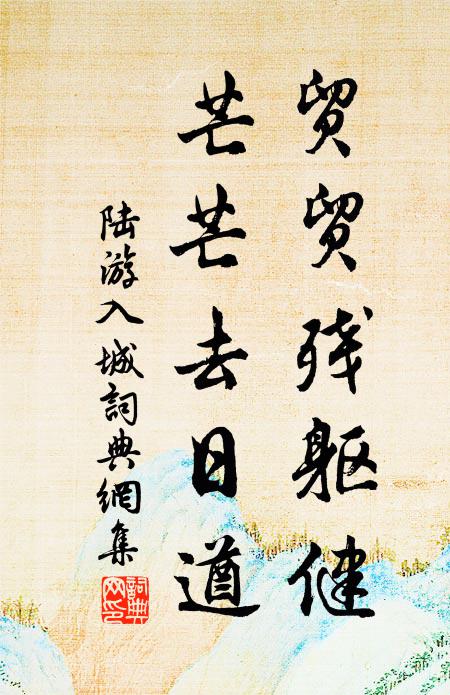 贸贸残躯健
芒芒去日遒
陆游入城詞典網集
詞典